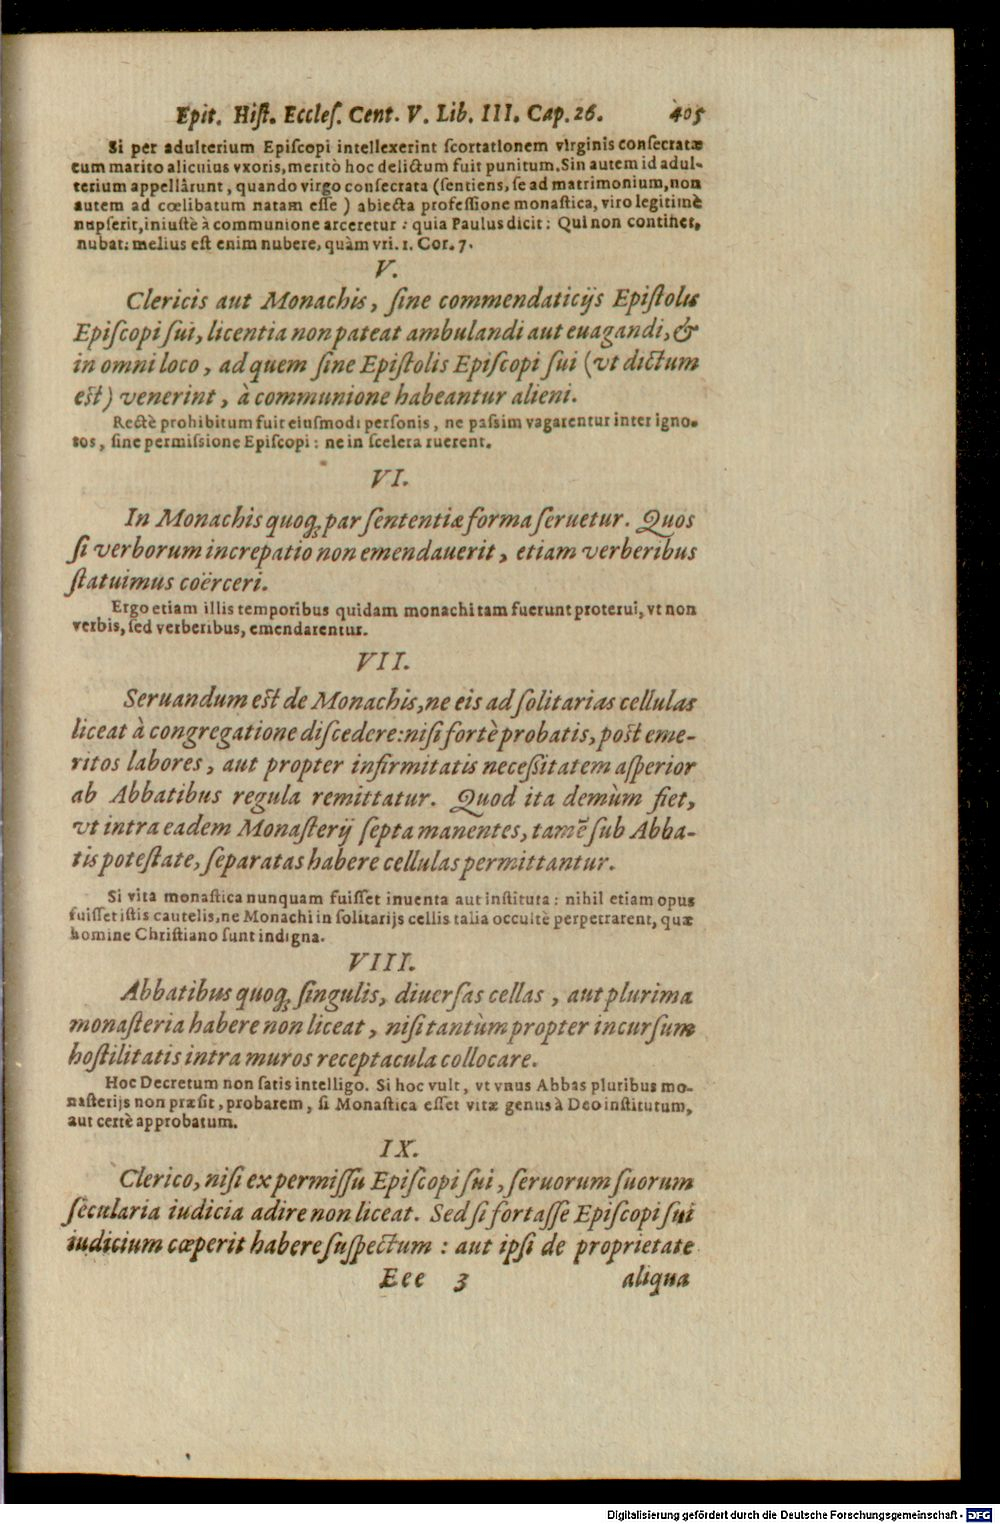 Epit. Hiſt. Eccleſ. Cent. V. Lib. III. Cap. 26. 405
Si per adulterium Epiſcopi intellexerint ſcortationem virginis conſecratæ
cum marito alicuius vxoris, meritò hoc delictum fuit punitum. Sin autem id adul-
terium appellârunt, quando virgo conſecrata (ſentiens, ſe ad matrimonium, non
autem ad cœlibatum natam eſſe) abiecta profeſſione monaſtica, viro legitimè
nupſerit, iniuſtè à communione arceretur: quia Paulus dicit: Qui non continet,
nubat: melius eſt enim nubere, quàm vri. 1. Cor. 7.
V.
Clericis aut Monachis, ſine commendaticijs Epiſtolis
Epiſcopi ſui, licentia non pateat ambulandi aut euagandi, &
in omni loco, ad quem ſine Epiſtolis Epiſcopi ſui (vt dictum
eſt) venerint, à communione habeantur alieni.
Rectè prohibitum fuit eiuſmodi perſonis, ne paſſim vagarentur inter igno-
tos, ſine permiſsione Epiſcopi: ne in ſcelera ruerent.
VI.
In Monachis quoq; par ſententiæ forma ſeruetur. Quos
ſi verborum increpatio non emendauerit, etiam verberibus
ſtatuimus coërceri.
Ergo etiam illis temporibus quidam monachi tam fuerunt proterui, vt non
verbis, ſed verberibus, emendarentur.
VII.
Seruandum eſt de Monachis, ne eis ad ſolitarias cellulas
liceat à congregatione diſcedere: niſi fortè probatis, poſt eme-
ritos labores, aut propter infirmitatis neceſſitatem aſperior
ab Abbatibus regula remittatur. Quod ita demùm fiet,
vt intra eadem Monaſterij ſepta manentes, tamẽ ſub Abba-
tis poteſtate, ſeparatas habere cellulas permittantur.
Si vita monaſtica nunquam fuiſſet inuenta aut inſtituta: nihil etiam opus
fuiſſet iſtis cautelis, ne Monachi in ſolitarijs cellis talia occultè perpetrarent, quæ
homine Chriſtiano ſunt indigna.
VIII.
Abbatibus quoq; ſingulis, diuerſas cellas, aut plurima
monaſteria habere non liceat, niſi tantùm propter incurſum
hoſtilitatis intra muros receptacula collocare.
Hoc Decretum non ſatis intelligo. Si hoc vult, vt vnus Abbas pluribus mo-
naſterijs non præſit, probarem, ſi Monaſtica eſſet vitæ genus à Deo inſtitutum,
aut certè approbatum.
IX.
Clerico, niſi ex permiſſu Epiſcopi ſui, ſeruorum ſuorum
ſecularia iudicia adire non liceat. Sed ſi fortaſſe Epiſcopi ſui
iudicium cœperit habere ſuſpectum: aut ipſi de proprietate
Eee 3 aliqua
Digitalisierung gefördert durch die Deutsche Forschungsgemeinschaft - DFG